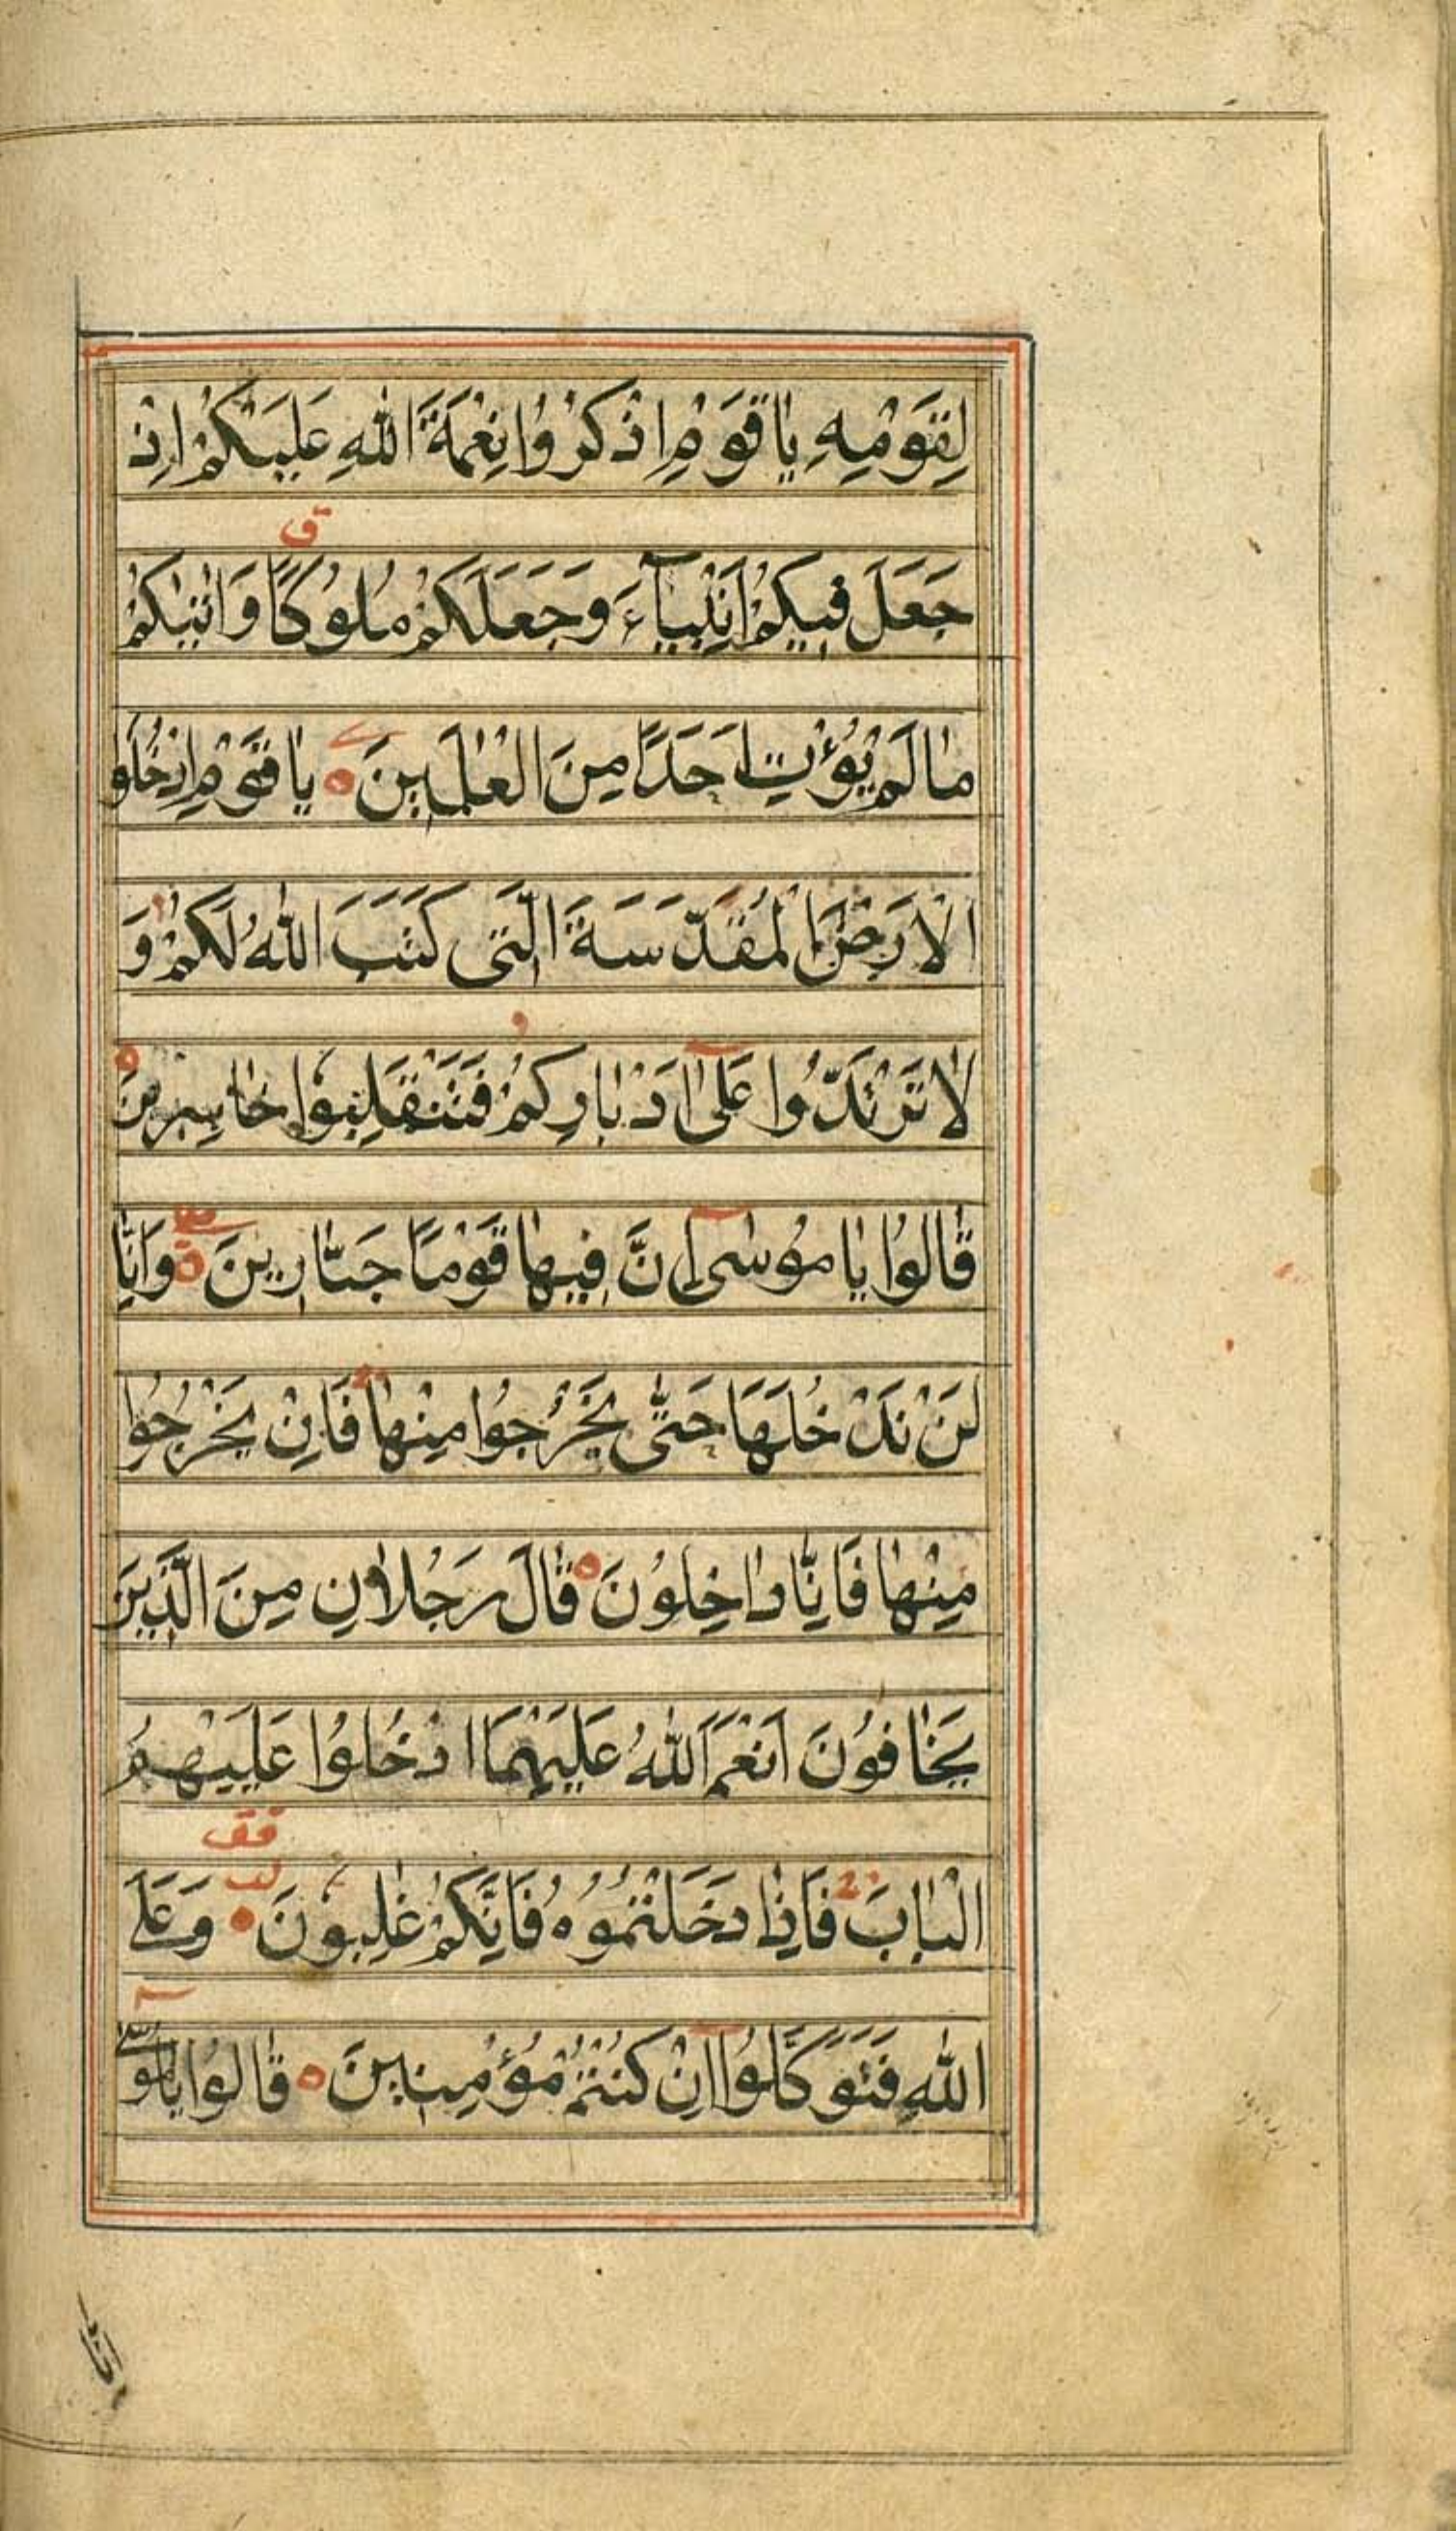 لِقَوْمِهِ يَا قَوْمِ اذْكُرُوا نِعْمَةَ اللّٰهِ عَلَيْكُمْ اِذْ
ق
جَعَلَ فِيكُمْ اَنْبِيَآءَ وَجَعَلَكُمْ مُلُوكًا وَاٰتٰيكُمْ
مَا لَمْ يُؤْتِ اَحَدًا مِنَ الْعٰلَمِينَ يَا قَوْمِ ادْخُلُوا
الْاَرْضَ الْمُقَدَّسَةَ الَّتِى كَتَبَ اللّٰهُ لَكُمْ وَ
لَا تَرْتَدُّوا عَلٰٓى اَدْبَارِكُمْ فَتَنْقَلِبُوا خَاسِرِينَ
قَالُوا يَا مُوسٰٓى اِنَّ فِيهَا قَوْمًا جَبَّارِينَ وَاِنَّا
لَنْ نَدْخُلَهَا حَتّٰى يَخْرُجُوا مِنْهَا فَاِنْ يَخْرُجُوا
مِنْهَا فَاِنَّا دَاخِلُونَ قَالَ رَجُلَانِ مِنَ الَّذِينَ
يَخَافُونَ اَنْعَمَ اللّٰهُ عَلَيْهِمَا ادْخُلُوا عَلَيْهِمُ
الْبَابَ فَاِذَا دَخَلْتُمُوهُ فَاِنَّكُمْ غٰلِبُونَ وَعَلَى
اللّٰهِ فَتَوَكَّلُوٓا اِنْ كُنْتُمْ مُؤْمِنِينَ قَالُوا يَا مُوسٰٓى